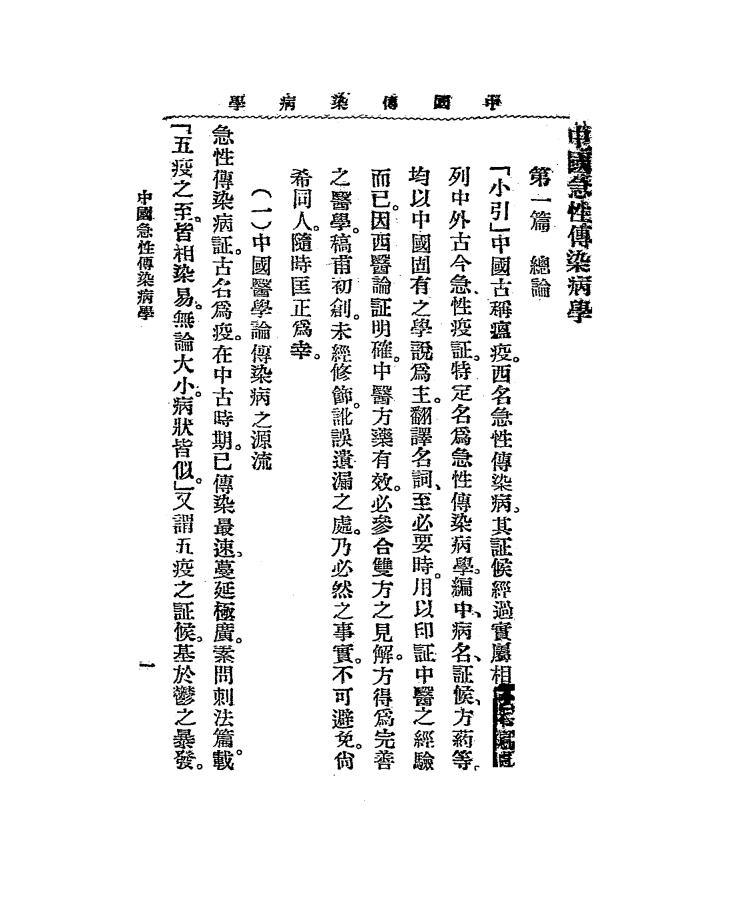 中國傳染病學
中國急性傳染病學
第一篇　總論
「小引」中國古稱瘟疫。西名急性傳染病。其証候經過實屬相
列中外古今急性疫証。特定名爲急性傳染病學。編中、病名、証候、方葯等。
均以中國固有之學說爲主。翻譯名詞、至必要時。用以印証中醫之經驗
而已。因西醫論証明確。中醫方藥有效。必參合雙方之見解。方得爲完善
之醫學。稿甫初創。未經修飾。訛誤遺漏之處。乃必然之事實。不可避免。尙
希同人。隨時匡正爲幸。
（一）中國醫學論傳染病之源流
急性傳染病証。古名爲疫。在中古時期。已傳染最速、蔓延極廣。素問刺法篇載。
「五疫之至。皆相染易。無論大小。病狀皆似。」又謂五疫之証候。基於鬱之暴發。
中國急性傳染病學
一